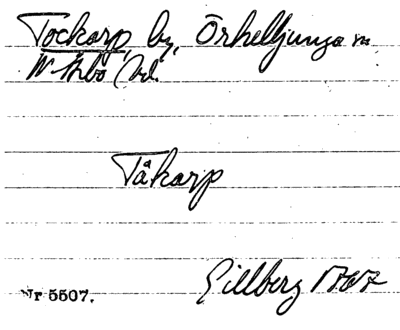 Tockarp, by, Örkelljunga sn
N. Åsbo hd.
Tåkarp
Gillberg 1767
Nr 5507.